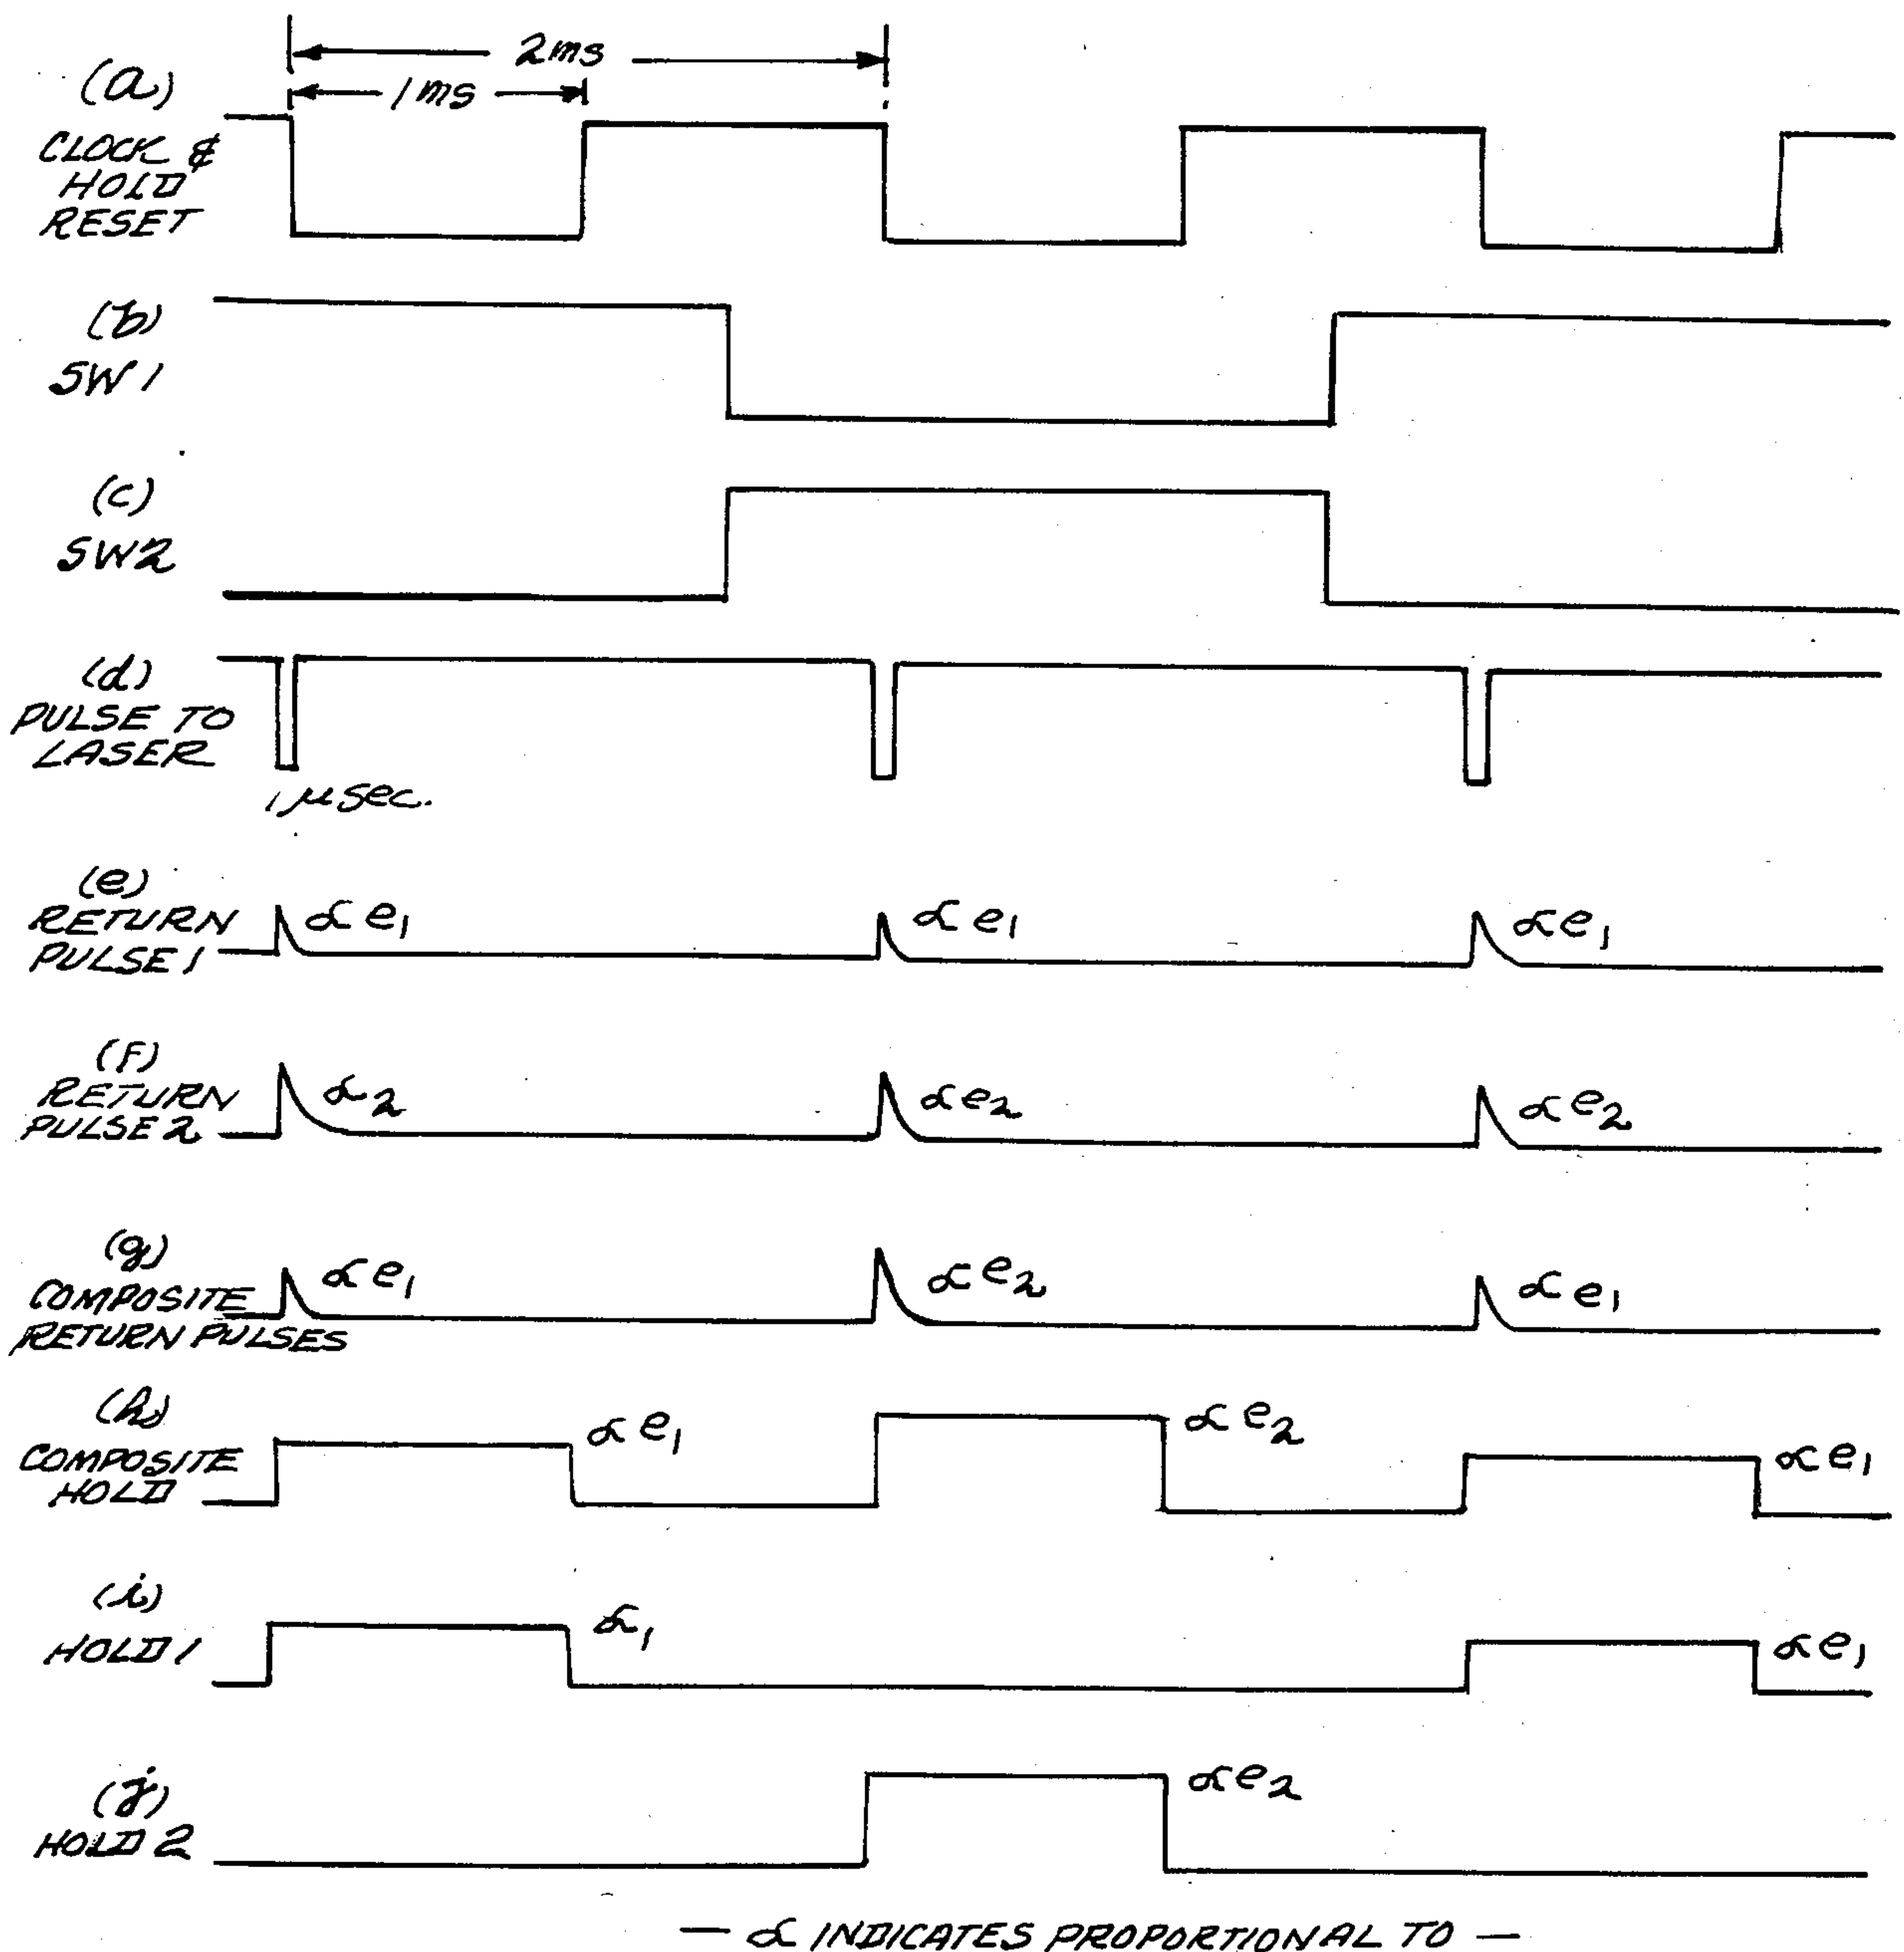 2ms
(a)
1ms
CLOCK &
HOLD
RESET
(b)
SW1
(c)
SW2
(d)
PULSE TO
LASER
1 μsec.
(e)
RETURN
PULSE 1
∝ e₁
∝ e₁
∝ e₁
(f)
RETURN
PULSE 2
∝ ₂
∝ e₂
∝ e₂
(g)
COMPOSITE
RETURN PULSES
∝ e₁
∝ e₂
∝ e₁
(h)
COMPOSITE
HOLD
∝ e₁
∝ e₂
∝ e₁
(i)
HOLD 1
∝ ₁
∝ e₁
(j)
HOLD 2
∝ e₂
— ∝ INDICATES PROPORTIONAL TO —